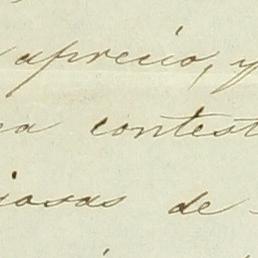 aprecio, y
na contest
josas de